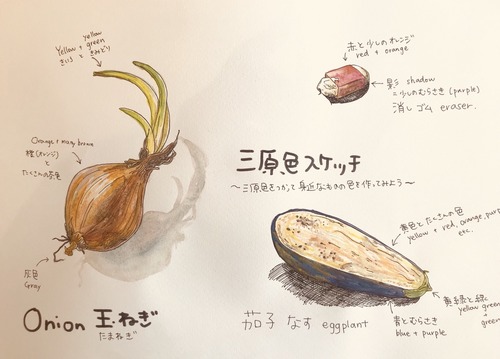 yellow
Yellow + green
きいろ と きみどり
Orange + many brown
橙(オレンジ)
と
たくさんの茶色
灰色
Gray
Onion 玉ねぎ
たまねぎ
赤と少しのオレンジ
red + orange
影 shadow
=少しのむらさき (purple)
消しゴム eraser.
三原色スケッチ
〜三原色をつかって身近なものの色を作ってみよう〜
黄色とたくさんの色
yellow + red, orange, purple
etc.
黄緑と緑
yellow green
+ green
青とむらさき
blue + purple
茄子 なす eggplant